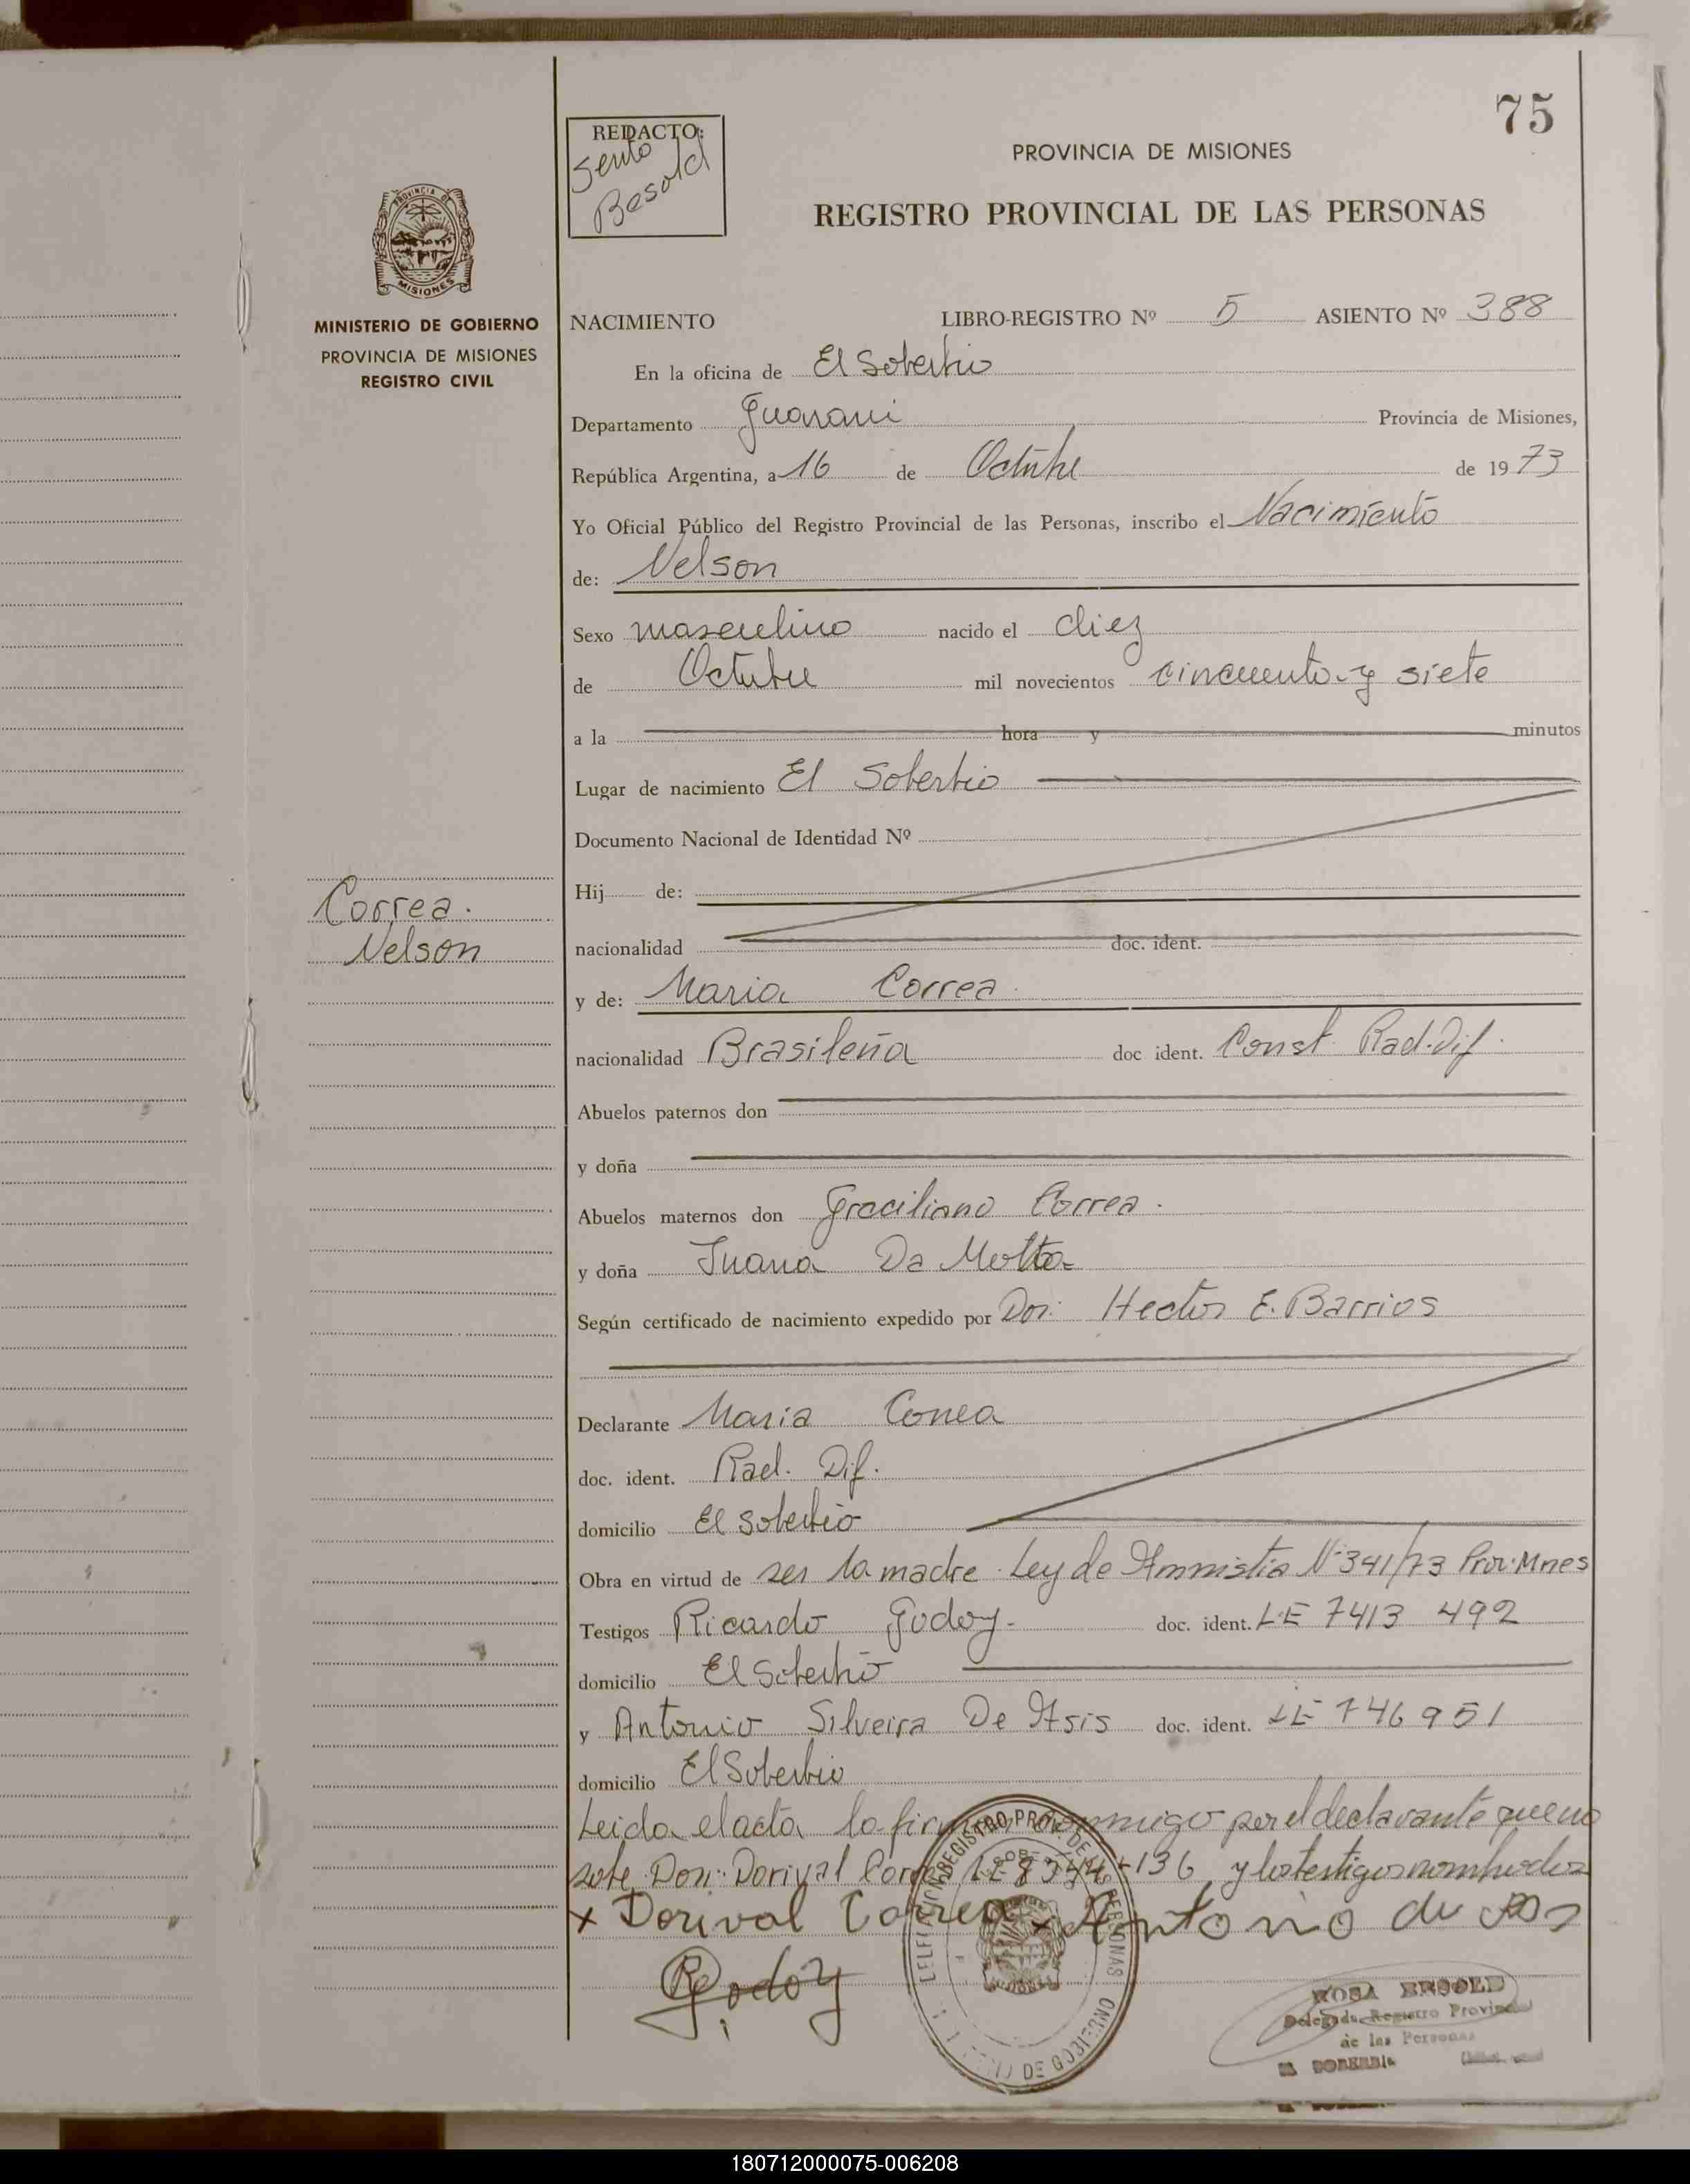 75
REDACTO:
Besold
PROVINCIA DE MISIONES
REGISTRO PROVINCIAL DE LAS PERSONAS
PROVINCIA DE
MISIONES
MINISTERIO DE GOBIERNO
PROVINCIA DE MISIONES
REGISTRO CIVIL
NACIMIENTO LIBRO-REGISTRO Nº 5 ASIENTO Nº 388
En la oficina de El Soberbio
Departamento Guarani Provincia de Misiones,
República Argentina, a 16 de Octubre de 1973
Yo Oficial Público del Registro Provincial de las Personas, inscribo el Nacimiento
de: Nelson
Sexo masculino nacido el diez
de Octubre mil novecientos cincuenta y siete
a la hora y minutos
Lugar de nacimiento El Soberbio
Documento Nacional de Identidad Nº
Hij de:
Correa.
Nelson
nacionalidad doc. ident.
y de: Maria Correa
nacionalidad Brasileña doc ident. Const Rad. Dif.
Abuelos paternos don
y doña
Abuelos maternos don Graciliano Correa.
y doña Juana Da Motta
Según certificado de nacimiento expedido por Dor. Hector E. Barrios
Declarante Maria Correa
doc. ident. Rad. Dif.
domicilio El Soberbio
Obra en virtud de ser la madre. Ley de Amnistia Nº 341/73 Prov. Mnes
Testigos Ricardo Godoy doc. ident. LE 7413 492
domicilio El Soberbio
y Antonio Silveira De Asis doc. ident. LE 746951
domicilio El Soberbio
Leida el acta la firman conmigo por el declarante que no
sabe Don: Dorival Correa LE 136 y los testigos nombrados
x Dorival Correa x Antonio de
R. Godoy
REGISTRO PROV. DE LAS PERSONAS
ROSA BESOLD
Delegada Registro Provincial
de las Personas
EL SOBERBIO
180712000075-006208